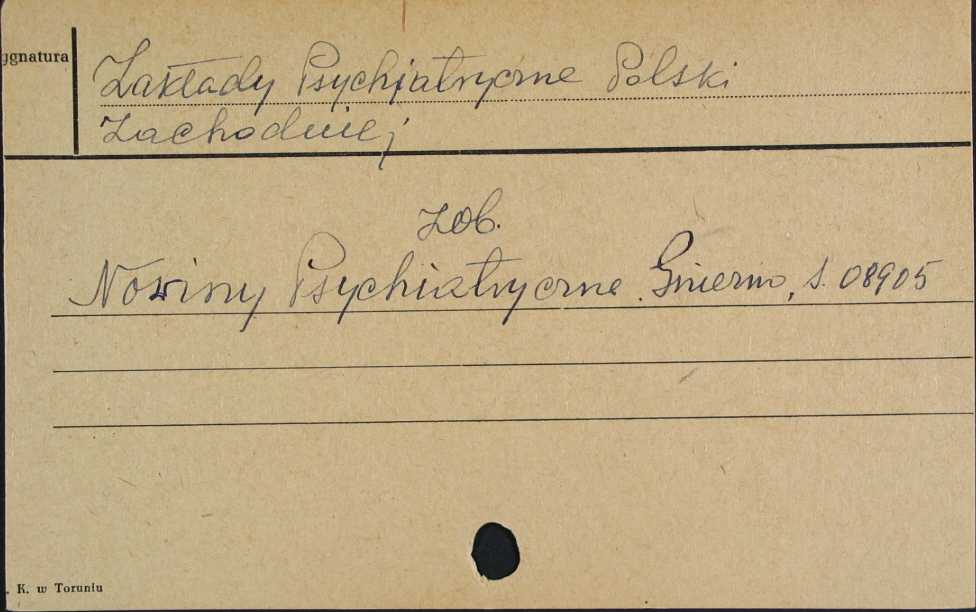 ygnatura
Zakłady Psychjatryczne Polski
Zachodniej
zob.
Nowiny Psychiatryczne. Gniezno, S. 08905
. K. w Toruniu